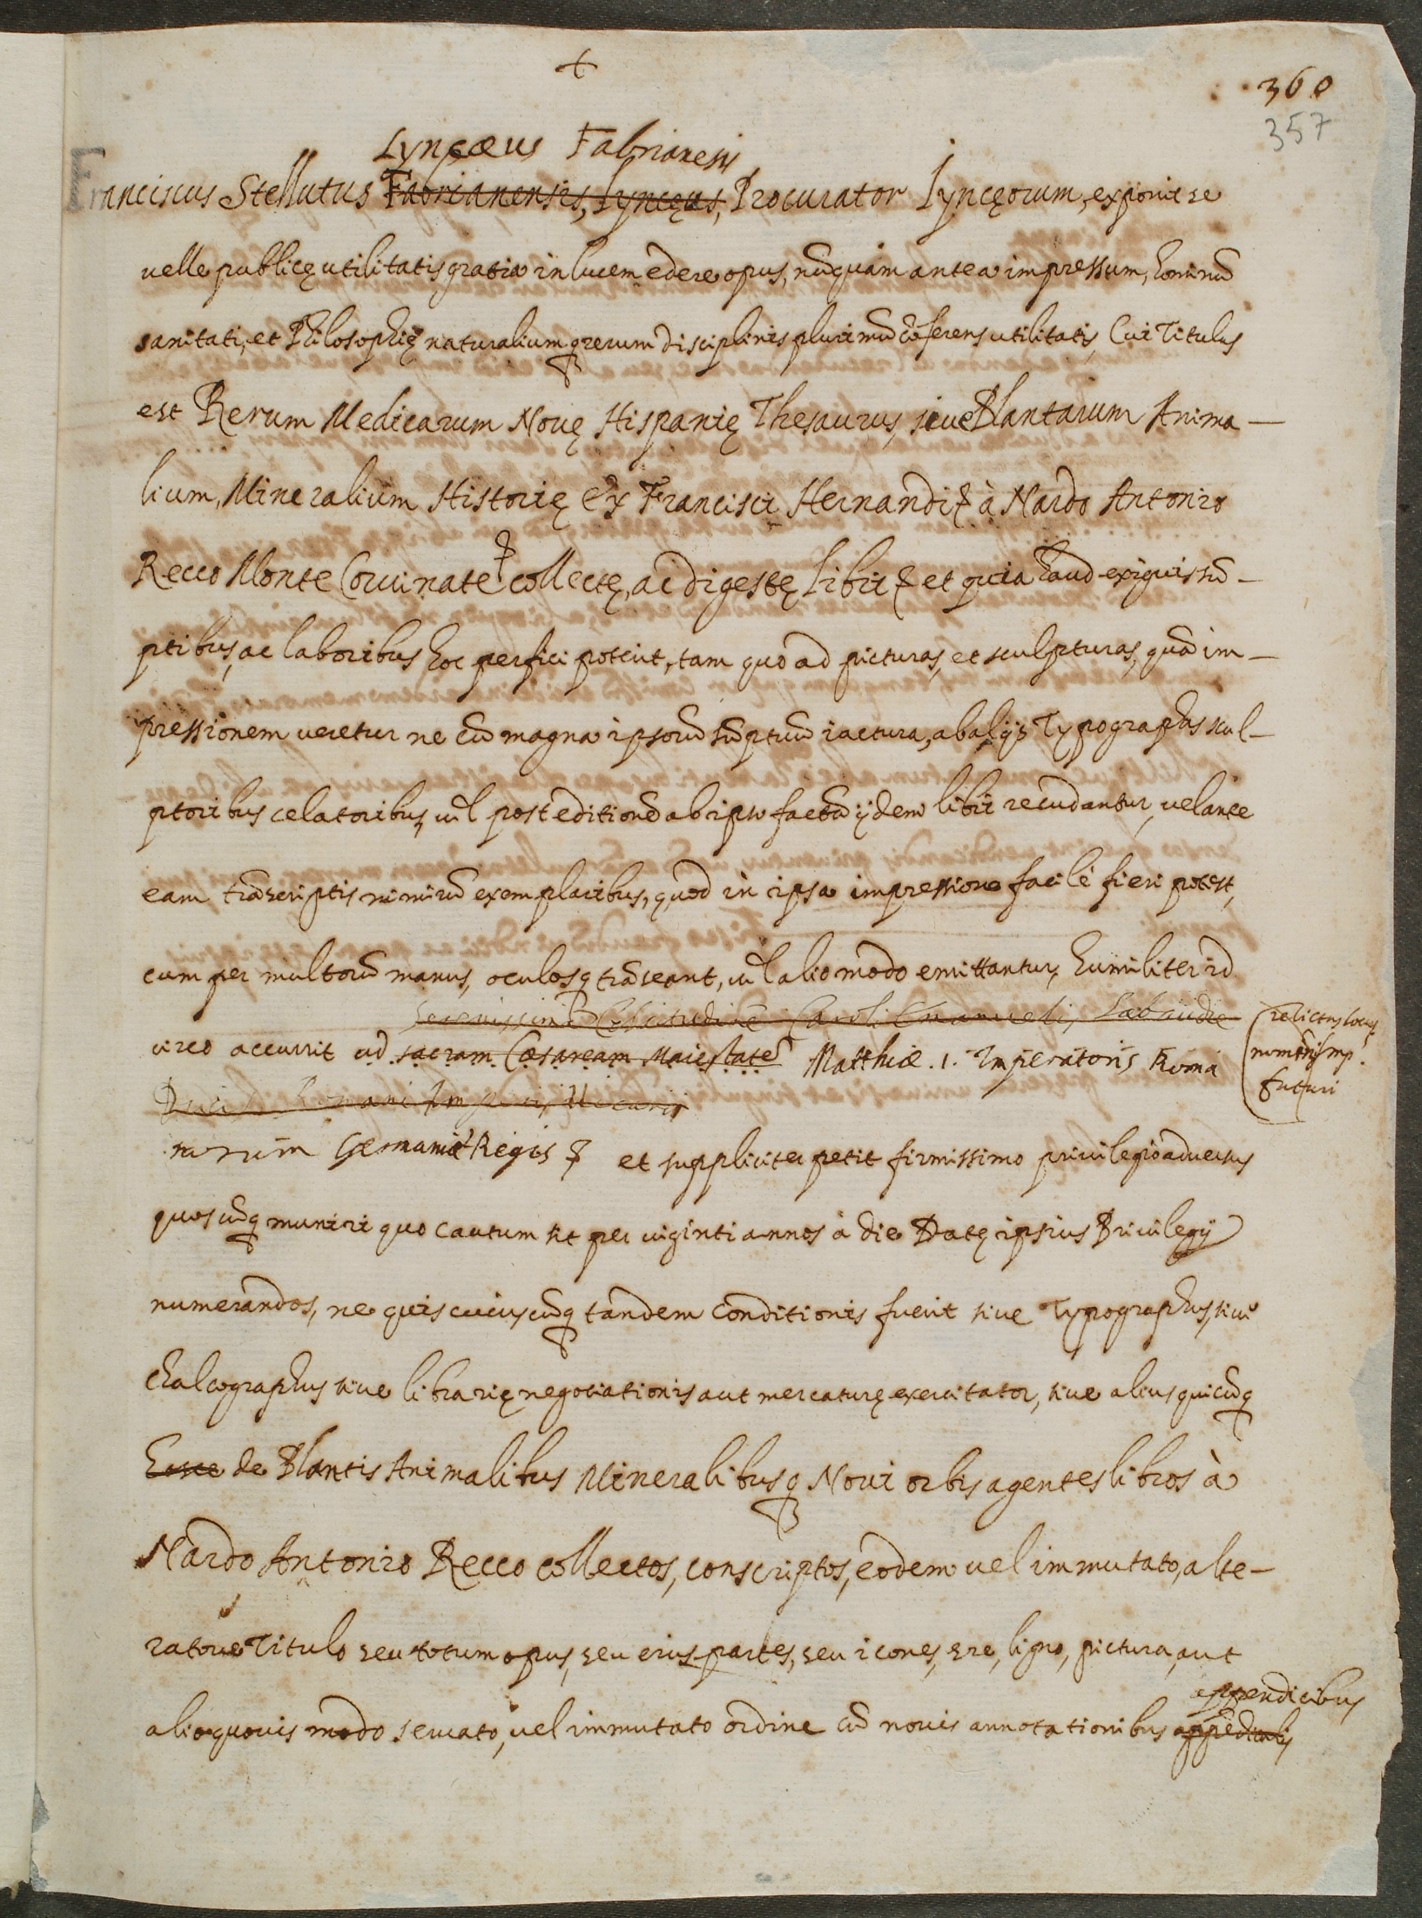 +
360
357
Lyncæus Fabrianensis
Franciscus Stellutus Fabrianensis, Lyncęus, Procurator Lyncęorum, exponit se
uelle publicę utilitatis gratia in lucem edere opus, nūquam antea impressum, hominū
sanitati, et Philosophię naturaliumq rerum disciplinis plurimū cōferens utilitatis, Cui Titulus
est Rerum Medicarum Nouę Hispanię Thesaurus, siue Plantarum Anima-
lium, Mineralium Historię Ex Francisci Hernandi à Nardo Antonio
Recco Monte Coruinate collectę, ac digestę Libri et quia haud exiguis sū-
ptibus, ac laboribus hoc perfici poterit, tam quo ad picturas, et sculpturas, quā im-
pressionem ueretur ne cū magna ipsorū sūptuū iactura, ab alijs Typographis scul-
ptoribus celatoribus, uel post editionē ab ipso factā ijdem libri recudantur, uel ante
eam trāscriptis nimirū exemplaribus, quod in ipsa impressione facilè fieri potest,
cum per multorū manus, oculosq trāseant, uel alio modo emittantur, humiliter id
Serenissimā Celsitudinē Caroli Emanuelis, Sabaudie
circo accurrit ad sacram Cæsaream Maiestatē Matthiæ .I. Imperatoris Roma
(relictus locus
nominis Imp.
futuri
Ducis Romani Imperij Vicarij
norum Germaniæ Regis et suppliciter petit firmissimo priuilegio aduersus
quoscūq muniri quo cautum sit per uiginti annos à die Datę ipsius Priuilegij
numerandos, ne quis cuiuscūq tandem conditionis fuerit siue Typographus, siue
chalcographus siue librarię negotiationis aut mercaturę exercitator, siue alius quicūq
Hosce de Plantis Animalibus Mineralibusq Noui orbis agentes libros à
Nardo Antonio Recco collectos, conscriptos, eodem uel immutato, alte-
ratoue Titulo seu totum opus, seu eius partes, seu icones, ęre, ligno, pictura, aut
alio quouis modo seruato, uel immutato ordine cū nouis annotationibus
appendicibus